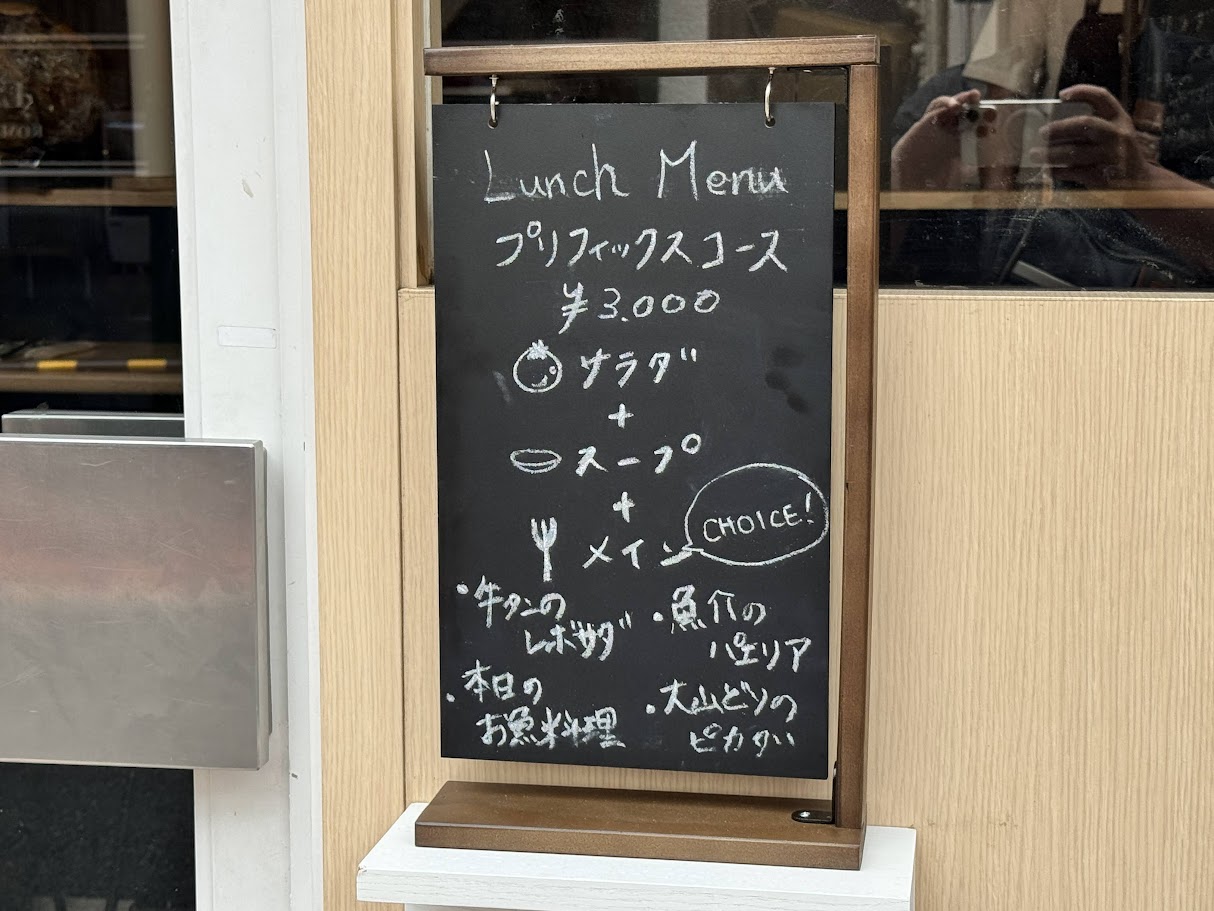 Lunch Menu
プリフィックスコース
¥3.000
サラダ
+
スープ
+
メイン
CHOICE!
・牛タンの
レボサダ
・魚介の
パエリア
・本日の
お魚料理
・大山どりの
ピカタ